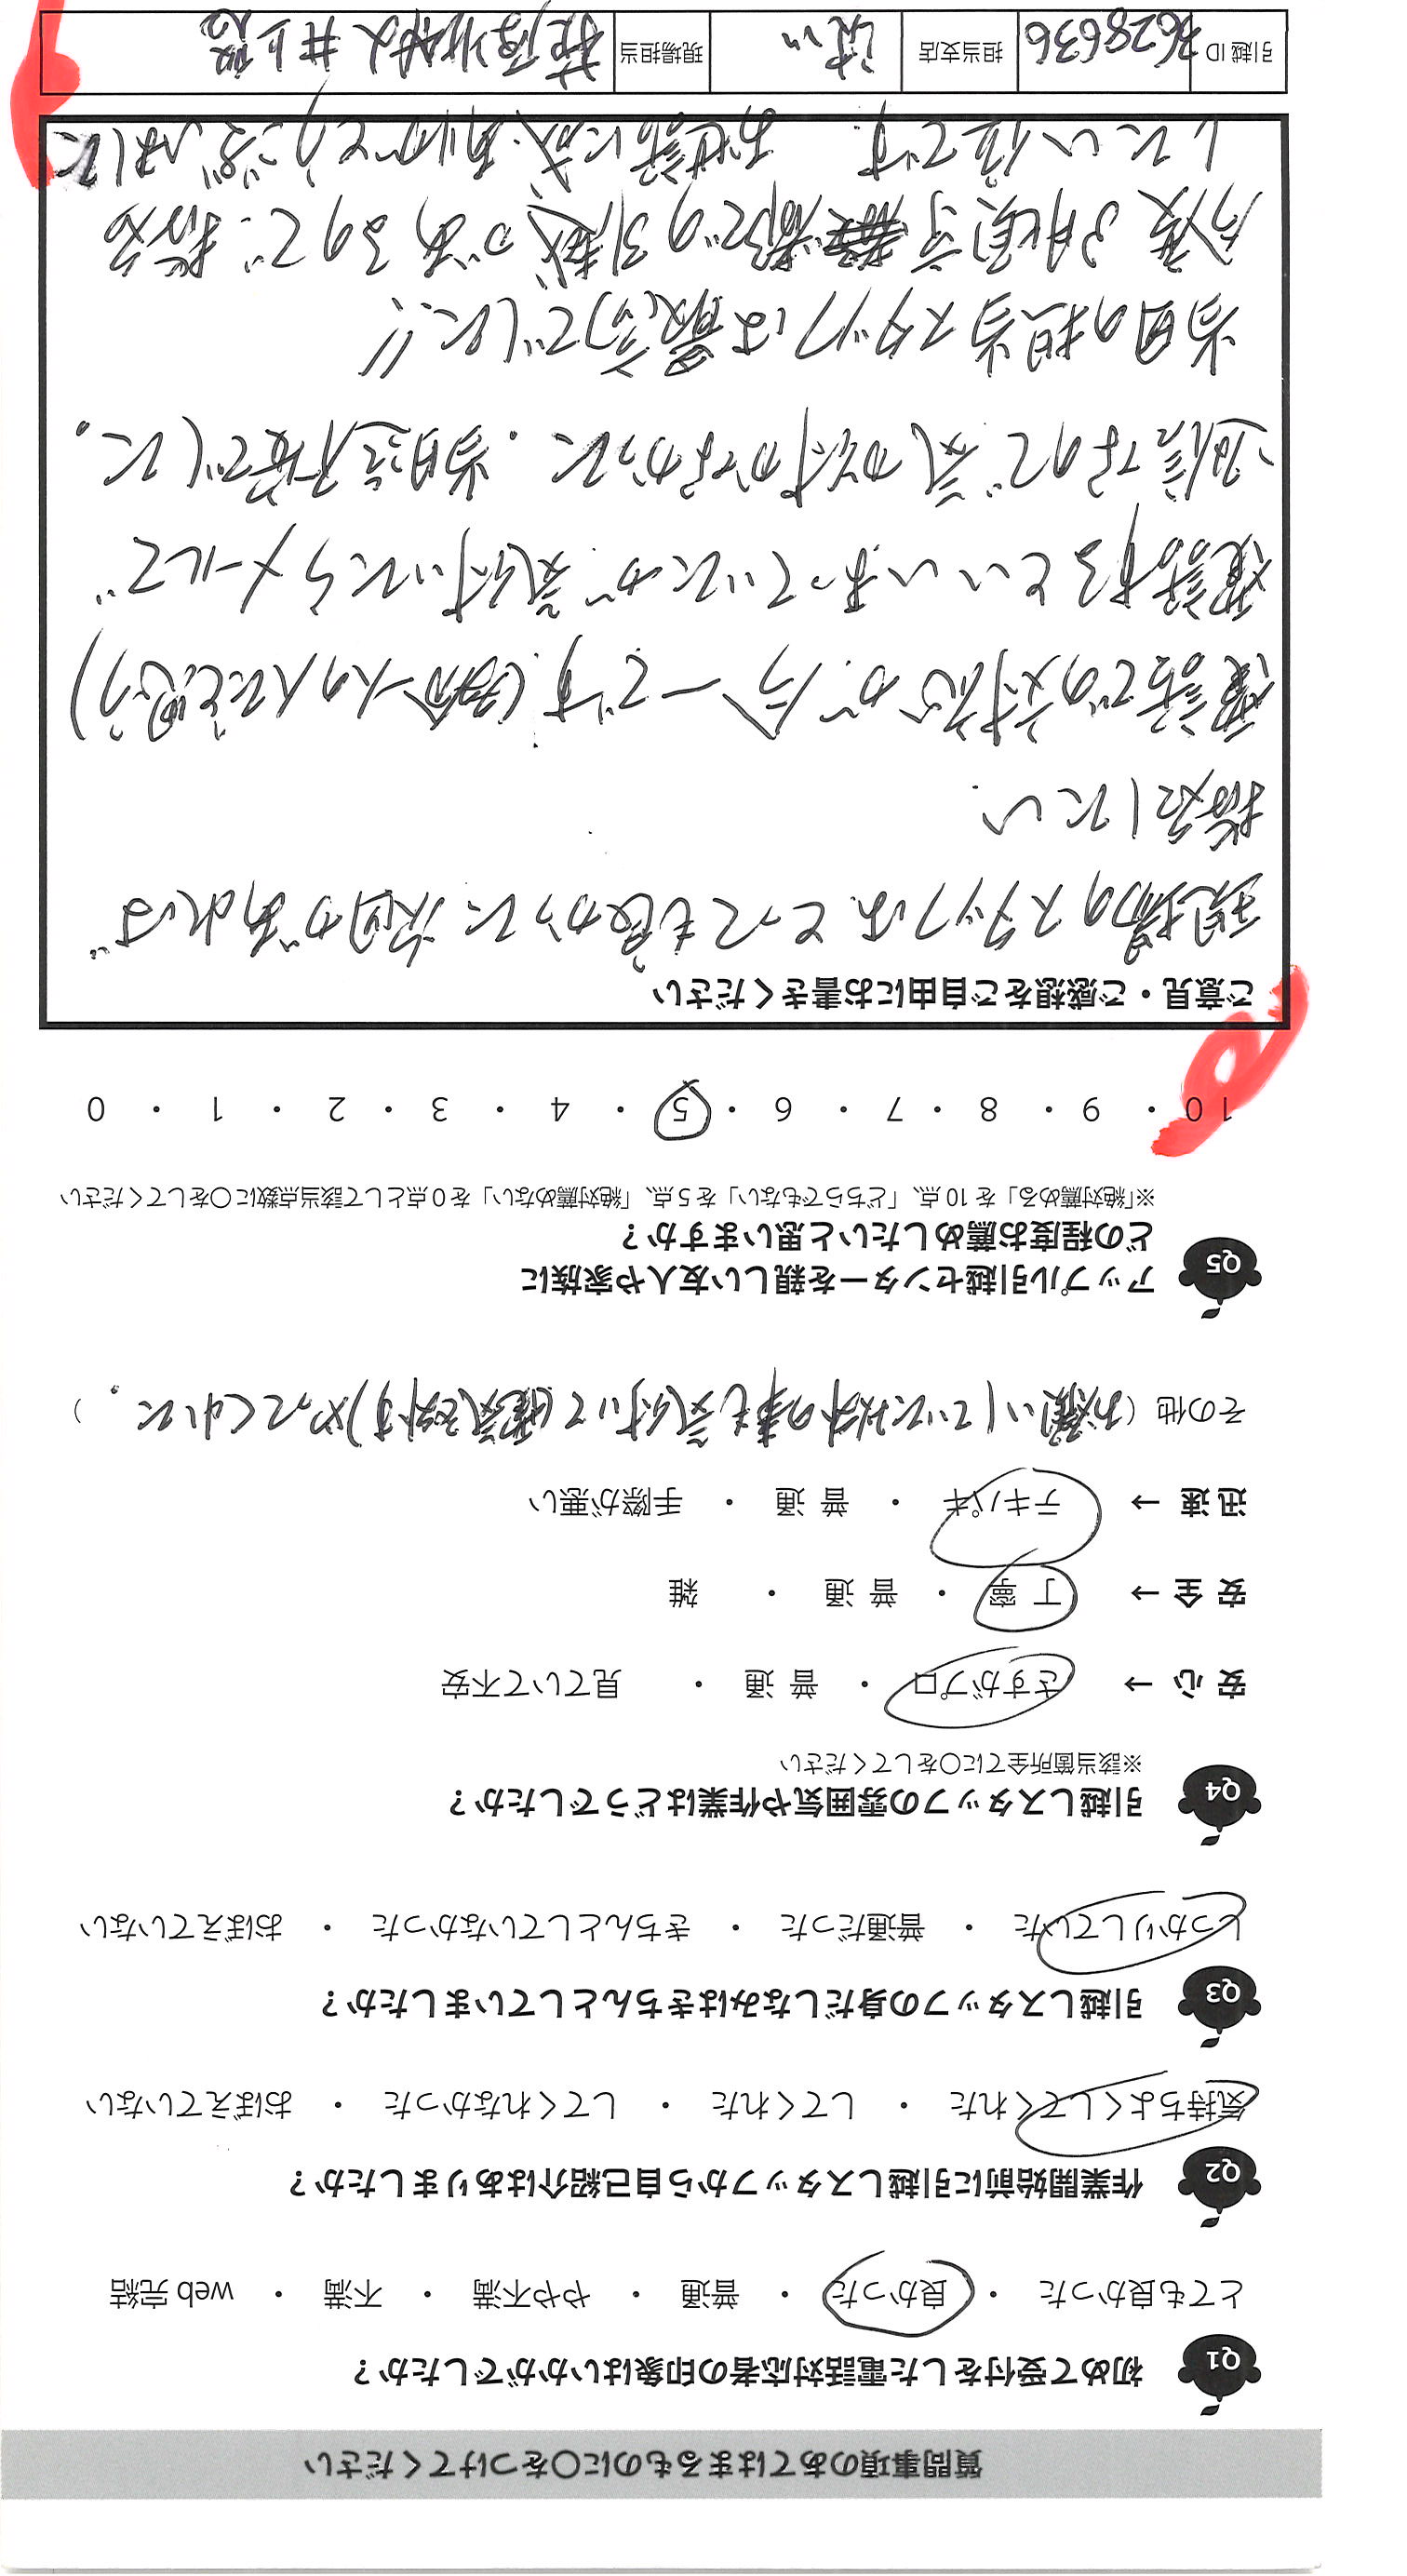 質問事項のあてはまるものに〇をつけてください
Q1 初めて受付をした電話対応者の印象はいかがでしたか？
とても良かった ・ 良かった ・ 普通 ・ やや不満 ・ 不満 ・ web 完結
Q2 作業開始前に引越しスタッフから自己紹介はありましたか？
気持ちよくしてくれた ・ してくれた ・ してくれなかった ・ おぼえていない
Q3 引越しスタッフの身だしなみはきちんとしていましたか？
しっかりしていた ・ 普通だった ・ きちんとしていなかった ・ おぼえていない
Q4 引越しスタッフの雰囲気や作業はどうでしたか？
※該当箇所全てに〇をしてください
安 心 → さすがプロ ・ 普 通 ・ 見ていて不安
安 全 → 丁 寧 ・ 普 通 ・ 雑
迅 速 → テキパキ ・ 普 通 ・ 手際が悪い
その他（お願いしていた以外の事も気付いて(電気を外す)やってくれた．）
Q5 アップル引越センターを親しい友人や家族に
どの程度お薦めしたいと思いますか？
※「絶対薦める」を 10 点、「どちらでもない」を 5 点、「絶対薦めない」を 0 点として該当点数に〇をしてください
10 ・ 9 ・ 8 ・ 7 ・ 6 ・ 5 ・ 4 ・ 3 ・ 2 ・ 1 ・ 0
ご意見・ご感想をご自由にお書きください
現場のスタッフは、とっても良かった 次回があれば
指名したい．
電話での対応が、今一です．(多分一人の人だと思う)
電話するといい、まっていたが、気付いたらメールで
返信なので気が付かなかった．当日迄不安でした。
当日の担当スタッフは最高でした!!
今度 3月頃 京都での引越があるので、指名
したい位です．お世話に成、ありがとうございました
引越 ID 3628636 担当支店 現場担当 井上殿